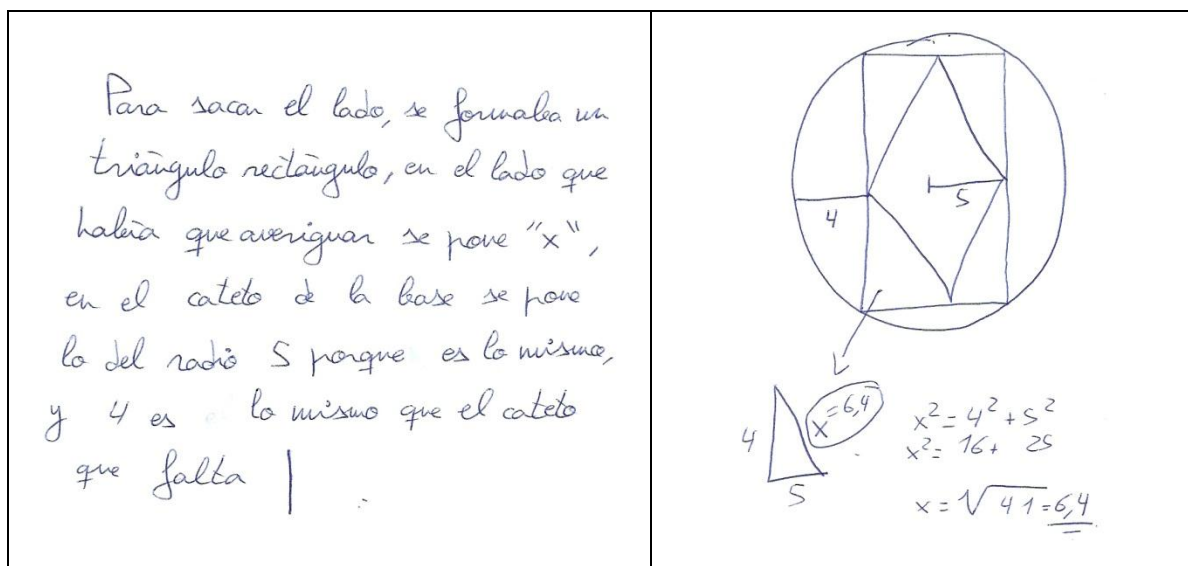 Para sacar el lado, se formaba un
triángulo rectángulo, en el lado que
había que averiguar se pone "x",
en el cateto de la base se pone
lo del radio 5 porque es lo mismo,
y 4 es lo mismo que el cateto
que falta
4
5
4
x=6,4
5
x²=4²+5²
x²= 16+ 25
x=√41=6,4